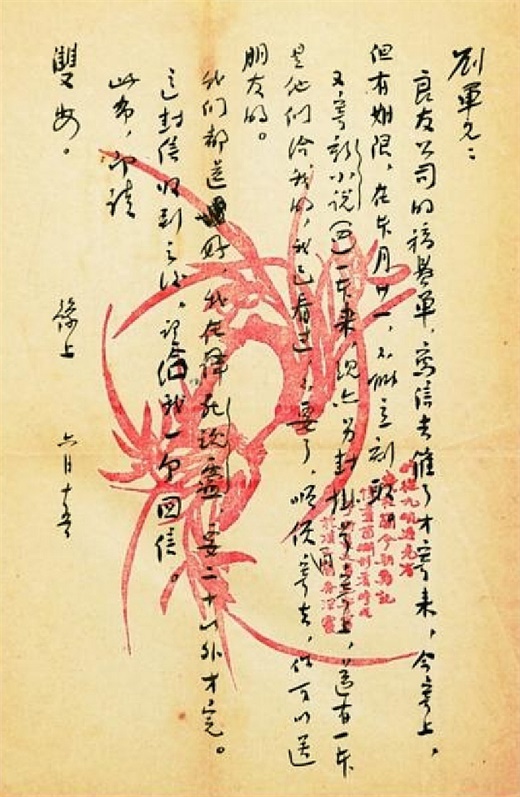 刘军兄:
良友公司的稿费单,写信去催了才寄来,今寄上,
但有期限,在本月廿一,不能立刻取。
又寄新小说(四)一本来,现亦另封挂号寄上,还有一本
是他们给我的,我已看过,不要了,顺便寄去,你可以送
朋友的。
我们都还好,我在译死魂灵,要二十以外才完。
这封信收到之后,望给我一个回信。
此布,即请
双安。
豫上 六月十五